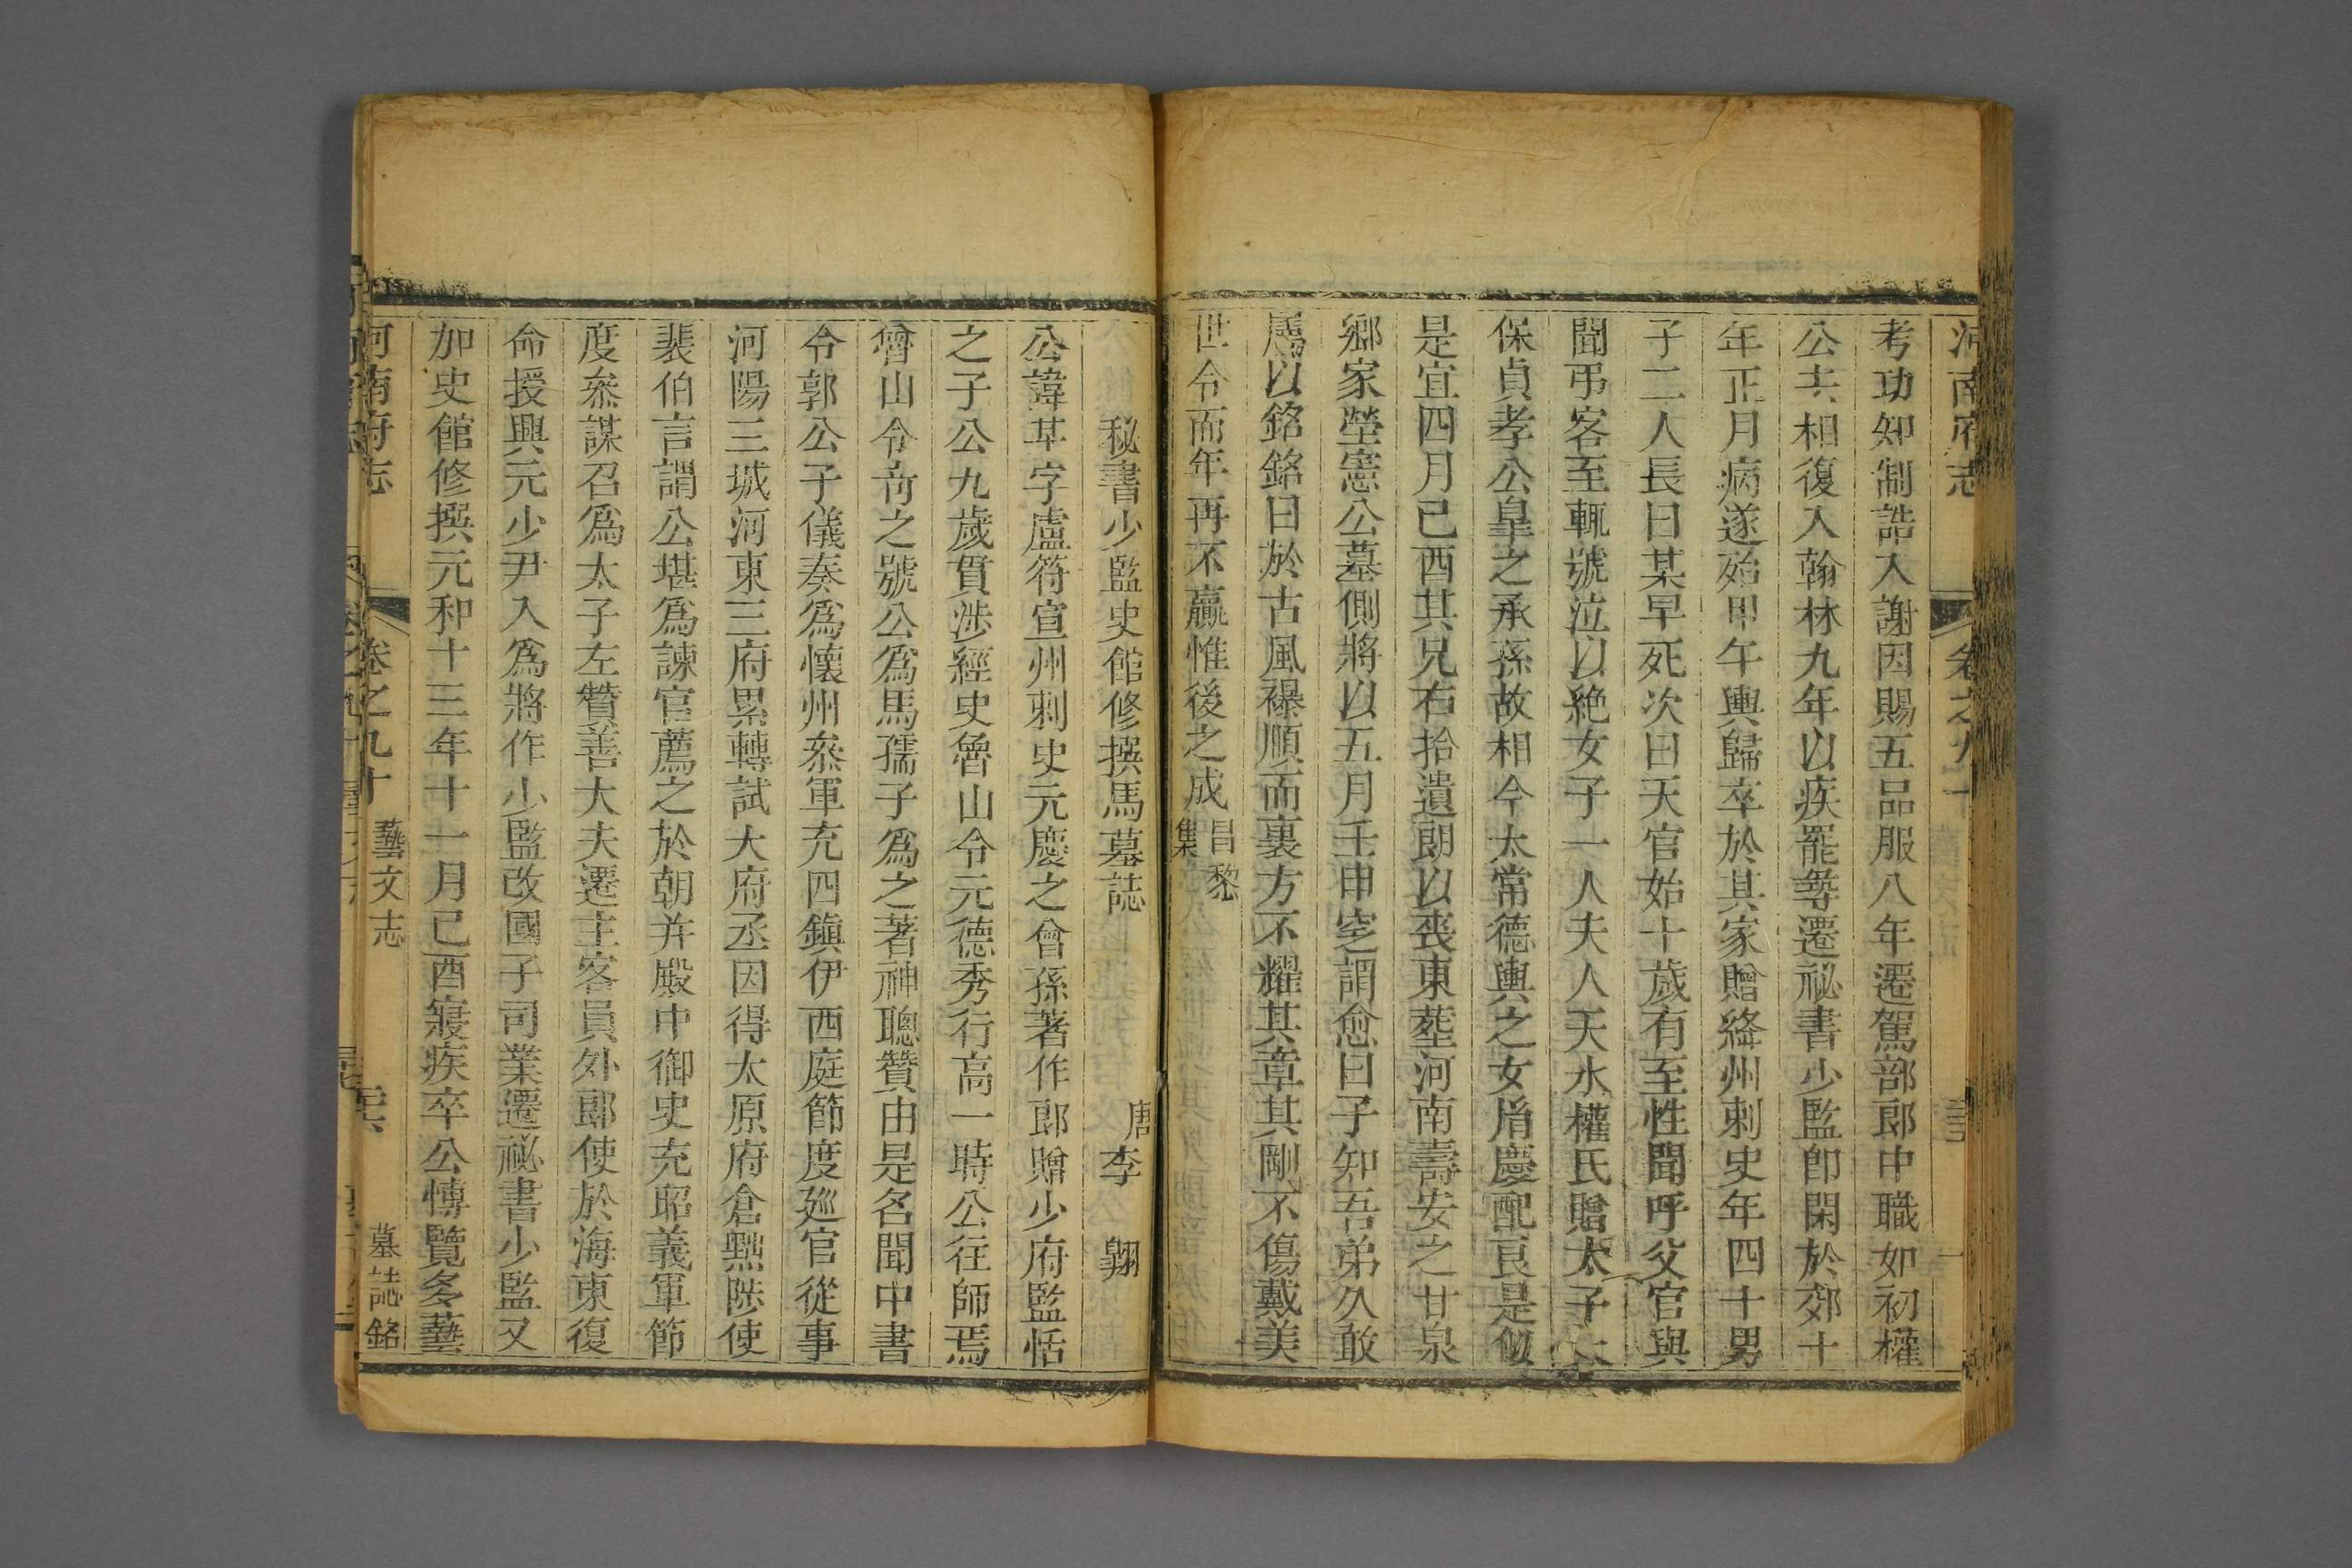 河南府志　卷之九十
考功知制誥入謝因賜五品服八年遷駕部郎中職如初權
公去相復入翰林九年以疾罷尋遷祕書少監卽閑於郊十
年正月病遂殆甲午輿歸卒於其家贈絳州刺史年四十男
子二人長曰某早死次曰天官始十歲有至性聞呼父官與
聞弔客至輒號泣以絶女子一人夫人天水權氏贈太子太
保貞孝公皐之承孫故相今太常德輿之女胄慶配良是似
是宜四月己酉其兄右拾遺朗以喪東葬河南壽安之甘泉
鄉家塋憲公墓側將以五月壬申窆謂愈曰子知吾弟久敢
屬以銘銘曰於古風襮順而裏方不耀其章其剛不傷戴美
世令而年再不贏惟後之成昌黎集
秘書少監史館修撰馬墓誌　唐李翺
公諱某字盧符宣州刺史元慶之會孫著作郎贈少府監恬
之子公九歲貫涉經史魯山令元德秀行高一時公往師焉
魯山令奇之號公爲馬孺子爲之著神聰贊由是名聞中書
令郭公子儀奏爲懷州叅軍充四鎮伊西庭節度廵官從事
河陽三城河東三府累轉試大府丞因得太原府倉曹陟使
裴伯言謂公堪爲諫官薦之於朝并殿中御史充昭義軍節
度叅謀召爲太子左贊善大夫遷主客員外郎使於海東復
命授興元少尹入爲將作少監改國子司業遷祕書少監又
加史館修撰元和十三年十一月己酉寢疾卒公博覽多藝
河南府志　卷之九十　藝文志　墓誌銘